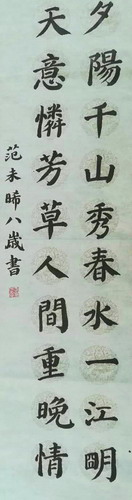 夕陽千山秀春水一江明
天意憐芳草人間重晚情
范未晞八歲書